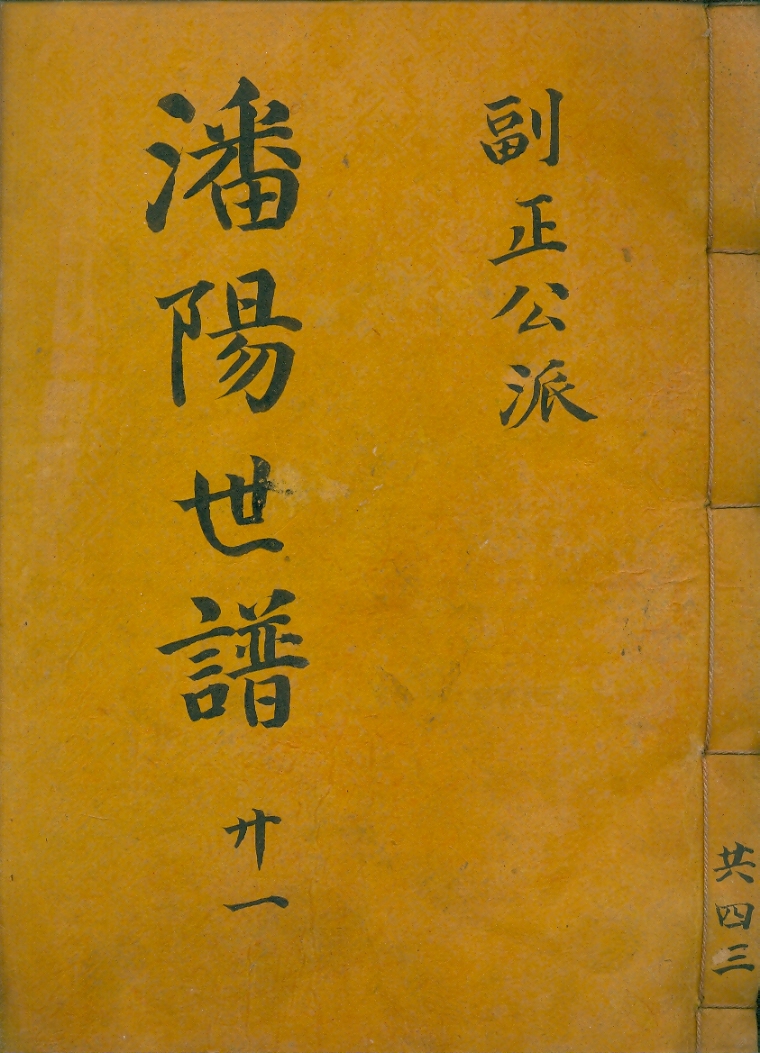 共四三
副正公派
潘陽世譜 廾一